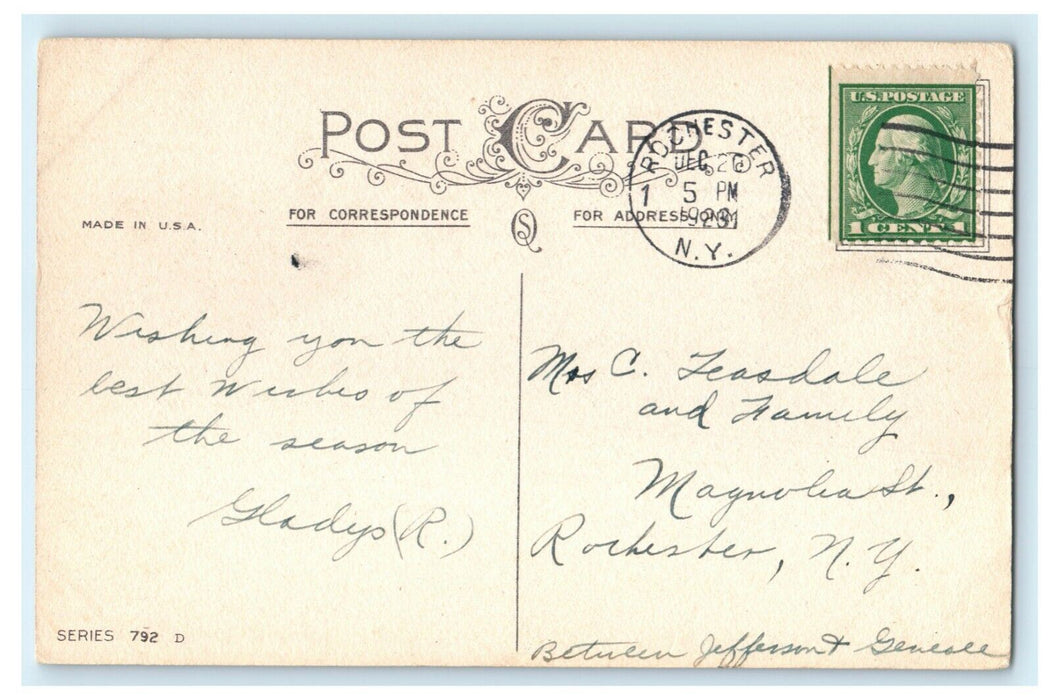 POST CARD
U.S.POSTAGE
1 CENT 1
ROCHESTER
1
5 PM
N.Y.
MADE IN U.S.A.
FOR CORRESPONDENCE
FOR ADDRESS ONLY
Wishing you the
best wishes of
the season
Gladys (R.)
Mrs C. Teasdale
and Family
Magnolia St.,
Rochester, N.Y.
Between Jefferson & Genesee
SERIES 792 D